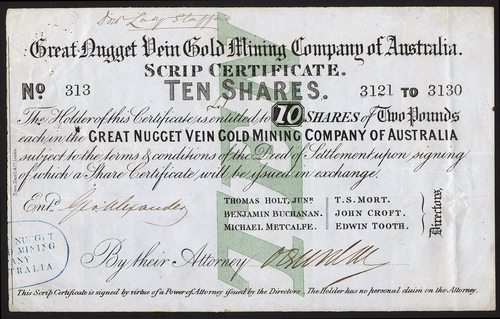 Great Nugget Vein Gold Mining Company of Australia.
SCRIP CERTIFICATE.
TEN SHARES.
No 313
3121 TO 3130
The Holder of this Certificate is entitled to 10 SHARES of Two Pounds
each in the GREAT NUGGET VEIN GOLD MINING COMPANY OF AUSTRALIA
subject to the terms & conditions of the Deed of Settlement upon signing
of which a Share Certificate, will be issued in exchange.
Entd. Geo Alexander
THOMAS HOLT, JUNR.
BENJAMIN BUCHANAN.
MICHAEL METCALFE.
T.S. MORT.
JOHN CROFT.
EDWIN TOOTH.
Directors,
TEN
NUGGET
MINING
ANY
TRALIA
By their Attorney
This Scrip Certificate is signed by virtue of a Power of Attorney issued by the Directors. The Holder has no personal claim on the Attorney.